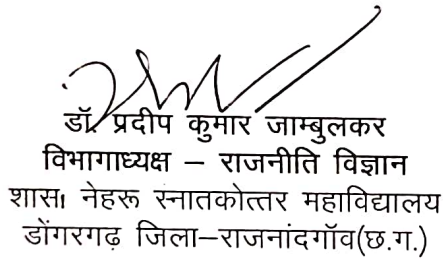 डॉ. प्रदीप कुमार जाम्बुलकर
विभागाध्यक्ष – राजनीति विज्ञान
शास। नेहरू स्नातकोत्तर महाविद्यालय
डोंगरगढ़ जिला–राजनांदगॉव(छ.ग.)